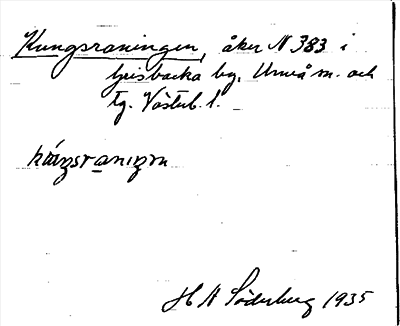 Kungsraningen, åker N 383 i
Grisbacka by, Umeå sn. och
tg. Västerb. l.
kɷŋsranıŋɷn
H A Söderberg 1935